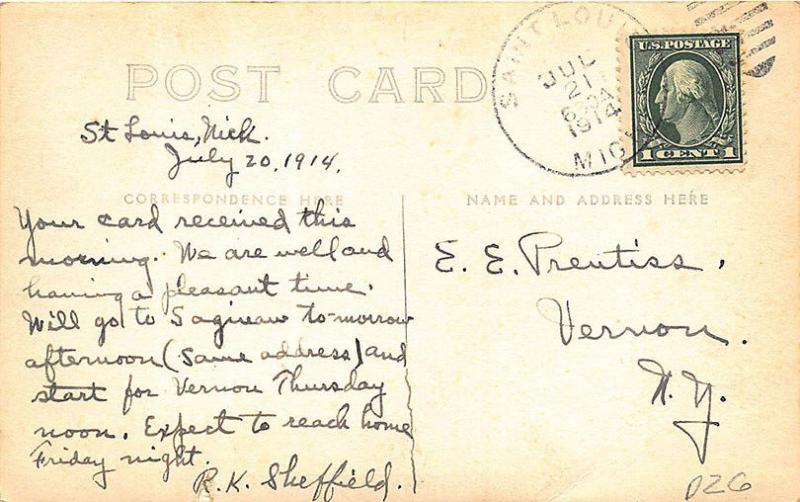 POST CARD
SAINT LOUIS
JUL
21
1914
MICH
U.S. POSTAGE
1 CENT 1
St Louis, Mich.
July 20, 1914.
CORRESPONDENCE HERE
Your card received this
morning. We are well and
having a pleasant time.
Will go to Saginaw to-morrow
afternoon (same address) and
start for Vernon Thursday
noon. Expect to reach home
Friday night.
R. K. Sheffield.
NAME AND ADDRESS HERE
E. E. Prentiss,
Vernon.
N. Y.